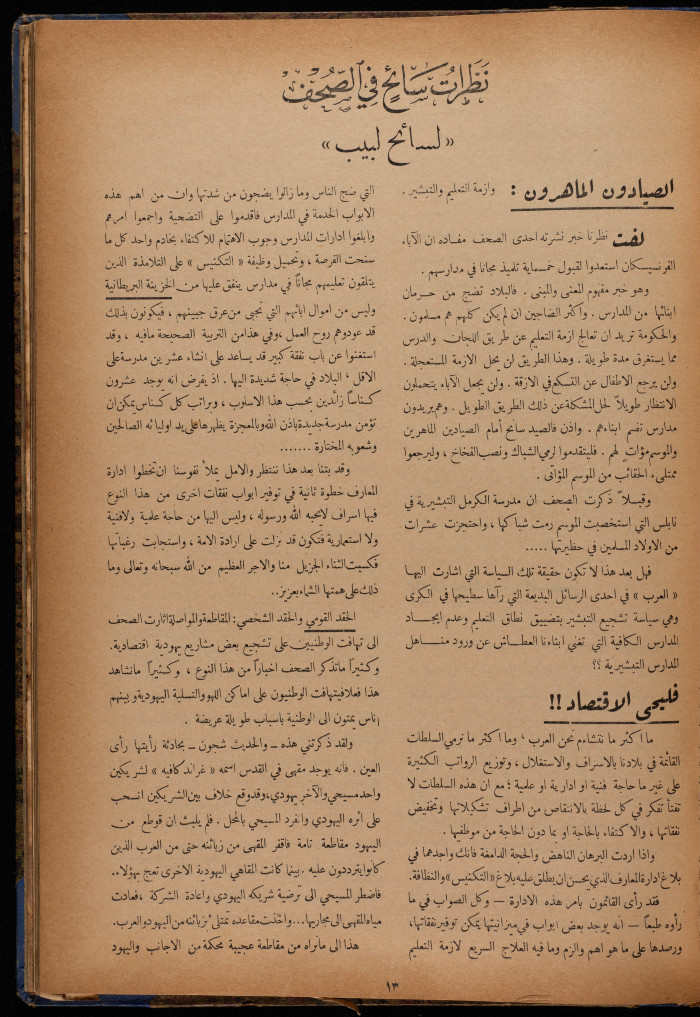 نظرات سائح في الصحف
«لسائح لبيب»
الصيادون الماهرون : وازمة التعليم والتبشير .
لفت نظرنا خبر نشرته احدى الصحف مفاده ان الآباء
الفرنسيسكان استعدوا لقبول خمسماية تلميذ مجانا في مدارسهم .
وهو خبر مفهوم المعنى والمبنى . فالبلاد تضج من حرمان
ابنائها من المدارس . واكثر الضاجين ان لم يكن كلهم هم مسلمون .
والحكومة تريد ان تعالج ازمة التعليم عن طريق اللجان والدرس
مما يستغرق مدة طويلة . وهذا الطريق لن يحل الازمة المستعجلة .
ولن يرجع الاطفال عن التسكع في الازقة . ولن يجعل الآباء يتحملون
الانتظار طويلاً لحل المشكلة عن ذلك الطريق الطويل . وهم يريدون
مدارس تضم ابناءهم . واذن فالصيد سانح أمام الصيادين الماهرين
والموسم مؤات لهم . فليتقدموا لرمي الشباك ونصب الفخاخ ، وليرجعوا
ممتلىء الحقائب من الموسم المؤاتى .
وقبلاً ذكرت الصحف ان مدرسة الكرمل التبشيرية في
نابلس التي استخصبت الموسم رمت شباكها ، واحتجزت عشرات
من الاولاد المسلمين في حظيرتها .....
فهل بعد هذا لا تكون حقيقة تلك السياسة التي اشارت اليها
« العرب » في احدى الرسائل البديعة التي رآها سطيحها في الكرى
وهي سياسة تشجيع التبشير بتضييق نطاق التعليم وعدم ايجاد
المدارس الكافية التي تغني ابناءنا العطاش عن ورود مناهل
المدارس التبشيرية ؟؟
فليحى الاقتصاد !!
ما اكثر ما نتشاءم نحن العرب ، وما اكثر ما نرمي السلطات
القائمة في بلادنا بالاسراف والاستغلال ، وتوزيع الرواتب الكثيرة
على غير ما حاجة فنية او ادارية او علمية ؛ مع ان هذه السلطات لا
تفتأ تفكر في كل لحظة بالانقاص من اطراف تشكيلاتها وتخفيض
نفقاتها ، والاكتفاء بالحاجة او بما دون الحاجة من موظفيها .
واذا اردت البرهان الناهض والحجة الدامغة فانك واجدهما في
بلاغ ادارة المعارف الذي يحسن ان يطلق عليه بلاغ «التكنيس» والنظافة.
فقد رأى القائمون بامر هذه الادارة — وكل الصواب في ما
رأوه طبعاً — انه يوجد بعض ابواب في ميزانيتها يمكن توفير نفقاتها،
ورصدها على ما هو اهم والزم وما فيه العلاج السريع لازمة التعليم
التي ضج الناس وما زالوا يضجون من شدتها وان من اهم هذه
الابواب الخدمة في المدارس فأقدموا على التضحية واجمعوا امرهم
وابلغوا ادارات المدارس وجوب الاهتمام للاكتفاء بخادم واحد كل ما
سنحت الفرصة ، وتحميل وظيفة « التكنيس » على التلامذة الذين
يتلقون تعليمهم مجاناً في مدارس ينفق عليها من الخزينة البريطانية
وليس من اموال ابائهم التي تجبى من عرق جبينهم ، فيكونون بذلك
قد عودوهم روح العمل ، وفي هذا من التربية الصحيحة ما فيه ، وقد
استغنوا عن باب نفقة كبير قد يساعد على انشاء عشرين مدرسة على
الاقل ' البلاد في حاجة شديدة اليها . اذ يفرض انه يوجد عشرون
كناساً زائدين بحسب هذا الاسلوب ، وبراتب كل كناس يمكن ان
تؤمن مدرسة جديدة باذن الله وبالمعجزة يظهرها على يد اوليائه الصالحين
وشعوبه المختارة .......
وقد بتنا بعد هذا ننتظر والامل يملأ نفوسنا ان تخطوا ادارة
المعارف خطوة ثانية في توفير ابواب نفقات اخرى من هذا النوع
فيها اسراف لا يحبه الله ورسوله ، وليس اليها من حاجة علمية ولا فنية
ولا استعمارية فتكون قد نزلت على ارادة الامة ، واستجابت رغباتها
فكسبت الثناء الجزيل منا والاجر العظيم من الله سبحانه وتعالى وما
ذلك على همتها الشماء بعزيز..
الحقد القومي والحقد الشخصي: المقاطعة والمواصلة اثارت الصحف
الى تهافت الوطنيين على تشجيع بعض مشاريع يهودية اقتصادية.
وكثيراً ما تذكر الصحف اخباراً من هذا النوع ، وكثيراً ما نشاهد
هذا فعلا فيتهافت الوطنيون على اماكن اللهو والتسلية اليهودية وبينهم
اناس يمتون الى الوطنية باسباب طويلة عريضة .
ولقد ذكرتني هذه — والحديث شجون — بحادثة رأيتها رأى
العين . فانه يوجد مقهى في القدس اسمه « غراند كافيه » لشريكين
واحد مسيحي والآخر يهودي، وقد وقع خلاف بين الشريكين انسحب
على اثره اليهودي وانفرد المسيحي بالمحل . فلم يلبث ان قوطع من
اليهود مقاطعة تامة فاقفر المقهى من زبائنه حتى من العرب الذين
كانوا يترددون عليه . بينما كانت المقاهي اليهودية الاخرى تعج بهؤلاء..
فاضطر المسيحي الى ترضية شريكه اليهودي واعادة الشركة ، فعادت
مياه المقهى الى مجاريها... واخذت مقاعده تمتلئ بزبائنه من اليهود والعرب.
هذا الى ما نراه من مقاطعة عجيبة محكمة من الاجانب واليهود
١٣